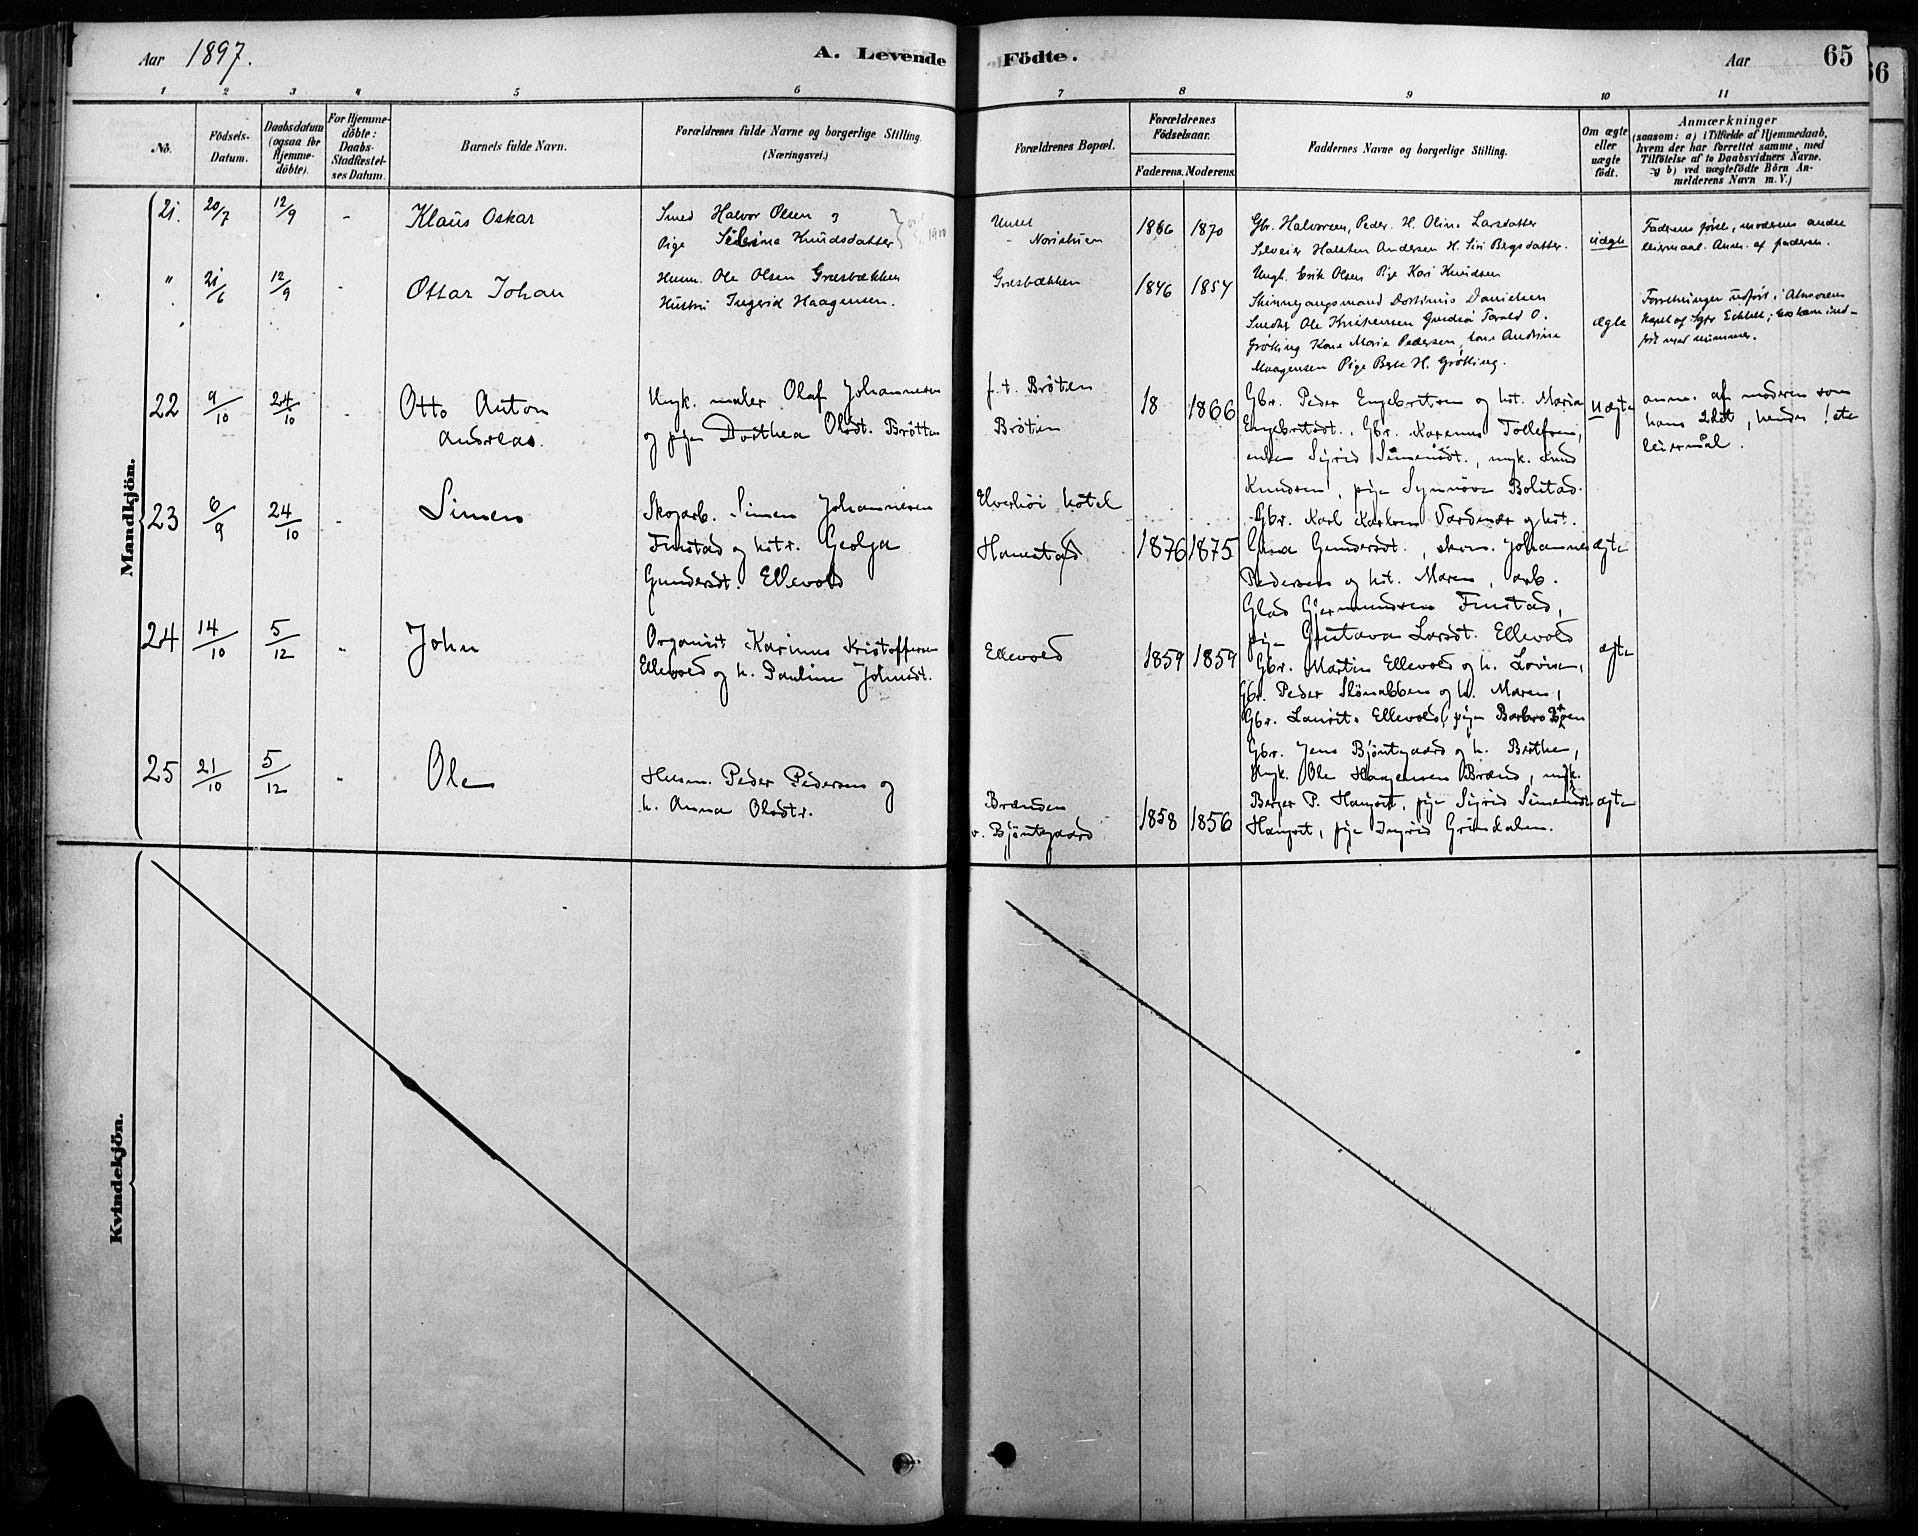 Aar 1897. A. Levende Födte. Aar 65
66
1 2 3 4 5 6 7 8 9 10 11
No.
Födsels-Datum.
Daabsdatum (ogsaa for Hjemme-döbte).
For Hjemme-döbte: Daabs-Stadfæstel-ses Datum.
Barnets fulde Navn.
Forældrenes fulde Navne og borgerlige Stilling.
(Næringsvei.)
Forældrenes Bopæl.
Forældrenes Födselsaar.
Faderens. Moderens.
Faddernes Navne og borgerlige Stilling.
Om ægte eller uægte födt.
Anmærkninger
(saasom: a) i Tilfælde af Hjemmedaab,
hvem der har forrettet samme, med
Tilföielse af to Daabsvidners Navne.
og b) ved uægtefödte Börn An-
melderens Navn m. V.)
Mandkjön.
21. 20/7 12/9 - Klaus Oskar
Smed Halvor Olsen og
Pige Severine Knudsdatter
Unset
- Noristuen
1866 1870
Gbr. Halvorsen, Peder. H. Oline Larsdatter
Selveier Halsten Andersen H. Siri Bergsdatter.
uægte
Faderens første, moderens andre
leiermaal. Anm. af faderen.
" 21/6 12/9 - Ottar Johan
Husm. Ole Olsen Græsbækken
Hustru Ingrid Haagensen.
Græsbækken
1846 1854
Ungk. Erik Olsen Pige Kari Knudsen
Skinnegangsmand Danielsen
Ole Kristensen Tarald O.
Grötting Kone Marie Pedersen, Kone Andrine
Haagensen Pige Berte H. Grötting.
ægte
Forretningen udført i Atnaosens
kapel af Sgpr. ; ind-
ført med nummer.
22 9/10 24/10 - Otto Anton
Andreas.
Ungk. maler Olaf Johannesen
og pige Dorthea Olsdt. Bråten
f. t. Bröten
Bröten
18 1866
Gbr. Peder Engebretsen og hst. Maria
Engebretsdt., Gbr. Karenus Tollefsen,
enke Sigrid Simensdt., ungk. Knud
Knudsen, pige Synnöve Bolstad.
Uægte
anm. af moderen som
hans 2det, hendes 1ste
leiermål.
23 6/9 24/10 - Simen
Skogarb. Simen Johannesen
Finstad og hstr. Geolga
Gundersdt. Ellevold
Elverhöi hotel
Hanestad
1876 1875
Gbr. Karl Karlsen Vardenær og hst.
Gina Gundersdt., Johannes
Pedersen og hst. Maren, arb.
Glad Gjermundsen Finstad,
pige Gustava Larsdt. Ellevold
ægte
24 14/10 5/12 " John
Organist Karinus Kristoffersen
Ellevold og h. Pauline Johnsdt.
Ellevold
1859 1859
Gbr. Martin Ellevold og h. Lovise,
Gbr. Peder og h. Maren,
Gbr. Laurits Ellevold, pige Barbro
ægte
25 21/10 5/12 " Ole
Husm. Peder Pedersen og
h. Anna Olsdtr.
Brænden
v. Bjöntegaard
1858 1856
Gbr. Jens Bjöntegaard og h. Berthe,
Ungk. Ole Haagensen Brænd, ungk.
Berger P. Hangset, pige Sigrid Simensdt.
Hangset, pige Ingrid Grindalen.
ægte
Kvindekjön.